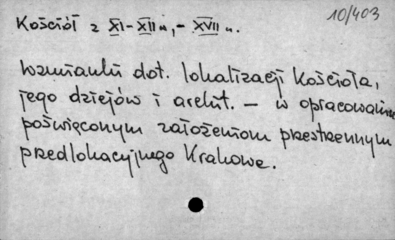 10/403
Kościół z XI-XII w., - XVII w.
Wzmianki dot. lokalizacji Kościoła,
jego dziejów i archit. – w opracowaniu
poświęconym założeniom przestrzennym
przedlokacyjnego Krakowa.